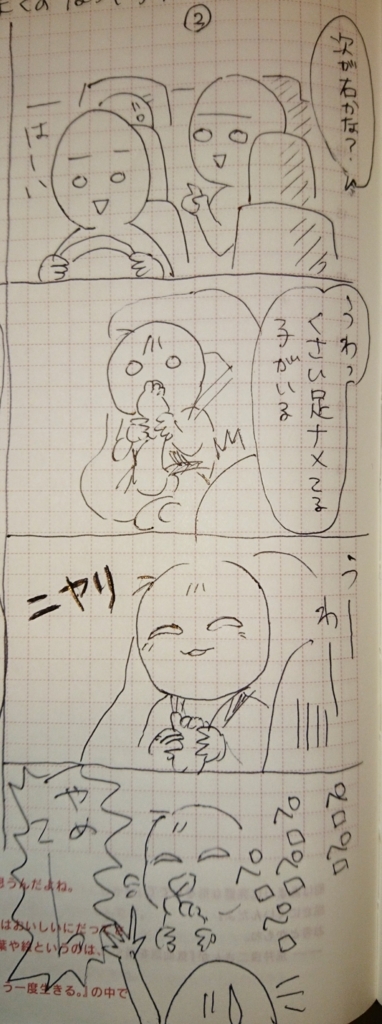 ②
次が右かな?
はーい
うわっ
くさい足ナメてる
子がいる
うーわー
ニヤリ
ペロペロ
ペロペロペロ
ペロペロ
やめてー
思うんだよね。
はおいしいにだって
葉や絵というのは、
う一度生きる。』の中で